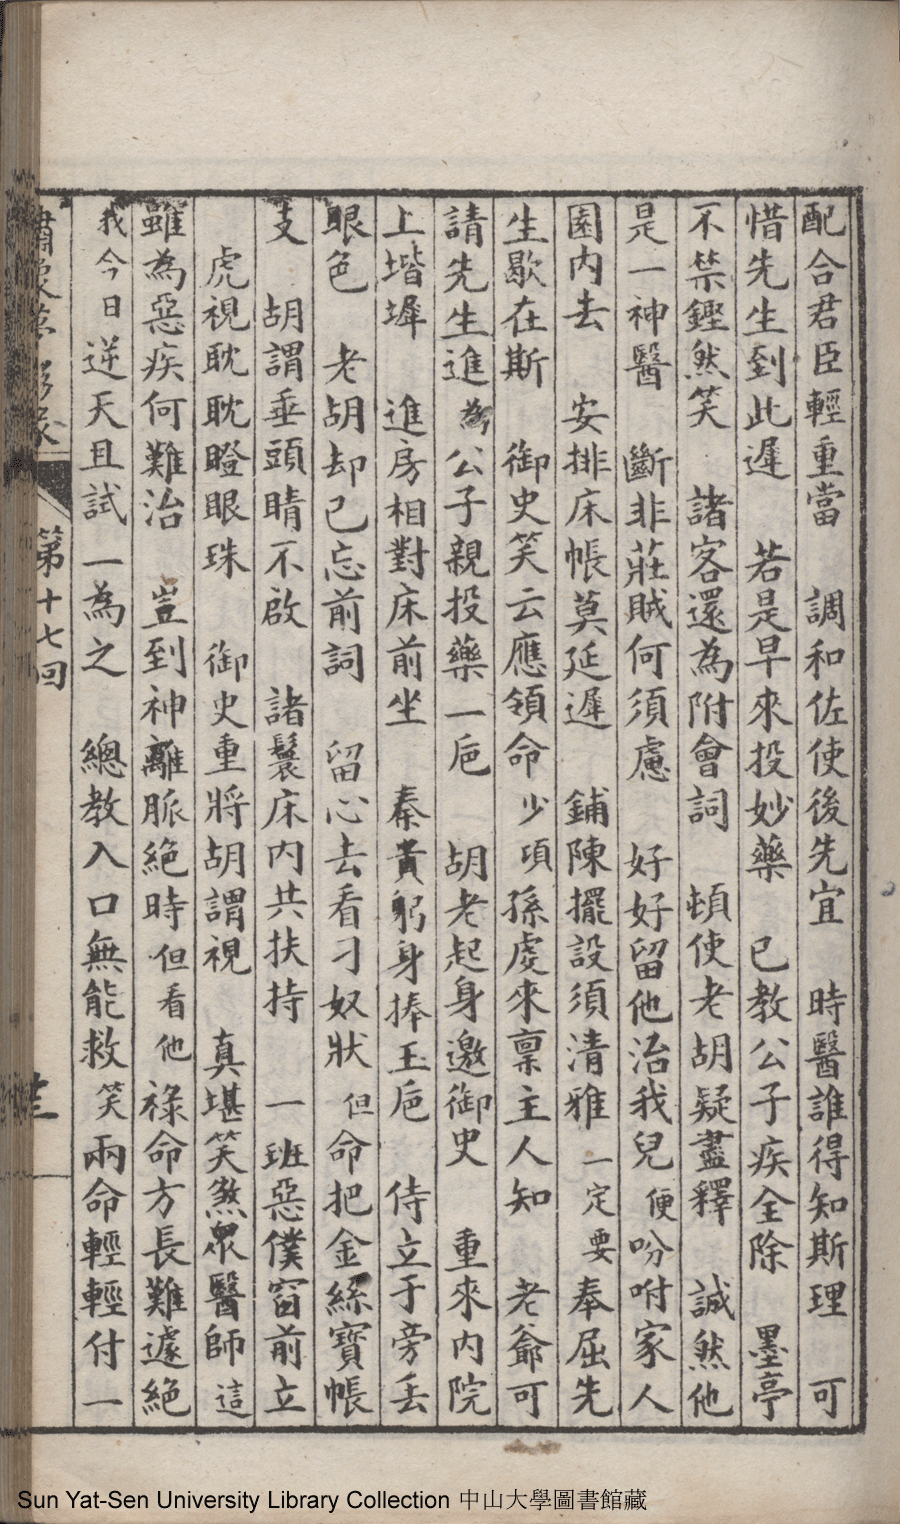 配合君臣輕重當　調和佐使後先宜　時醫誰得知斯理　可
惜先生到此遲　若是早來投妙藥　已教公子疾全除　墨亭
不禁鏗然笑　諸客還為附會詞　頓使老胡疑盡釋　誠然他
是一神醫　斷非莊賊何須慮　好好留他治我兒便吩咐家人
園內去　安排床帳莫延遲　鋪陳擺設須清雅一定要奉屈先
生歇在斯　御史笑云應領命少項孫虔來稟主人知　老爺可
請先生進為公子親投藥一卮　胡老起身邀御史　重來內院
上堦墀　進房相對床前坐　秦貴躬身捧玉卮　侍立于旁丟
眼色　老胡却已忘前詞　留心去看刁奴狀但命把金絲寶帳
支　胡謂垂頭睛不啟　諸鬟床內共扶持　一班惡僕窗前立
虎視眈眈瞪眼珠　御史重將胡謂視　真堪笑煞眾醫師這
雖為惡疾何難治　豈到神離脈絕時但看他祿命方長難遽絕
我今日逆天且試一為之　總教入口無能救笑兩命輕輕付一
第十七回
Sun Yat-Sen University Library Collection 中山大學圖書館藏